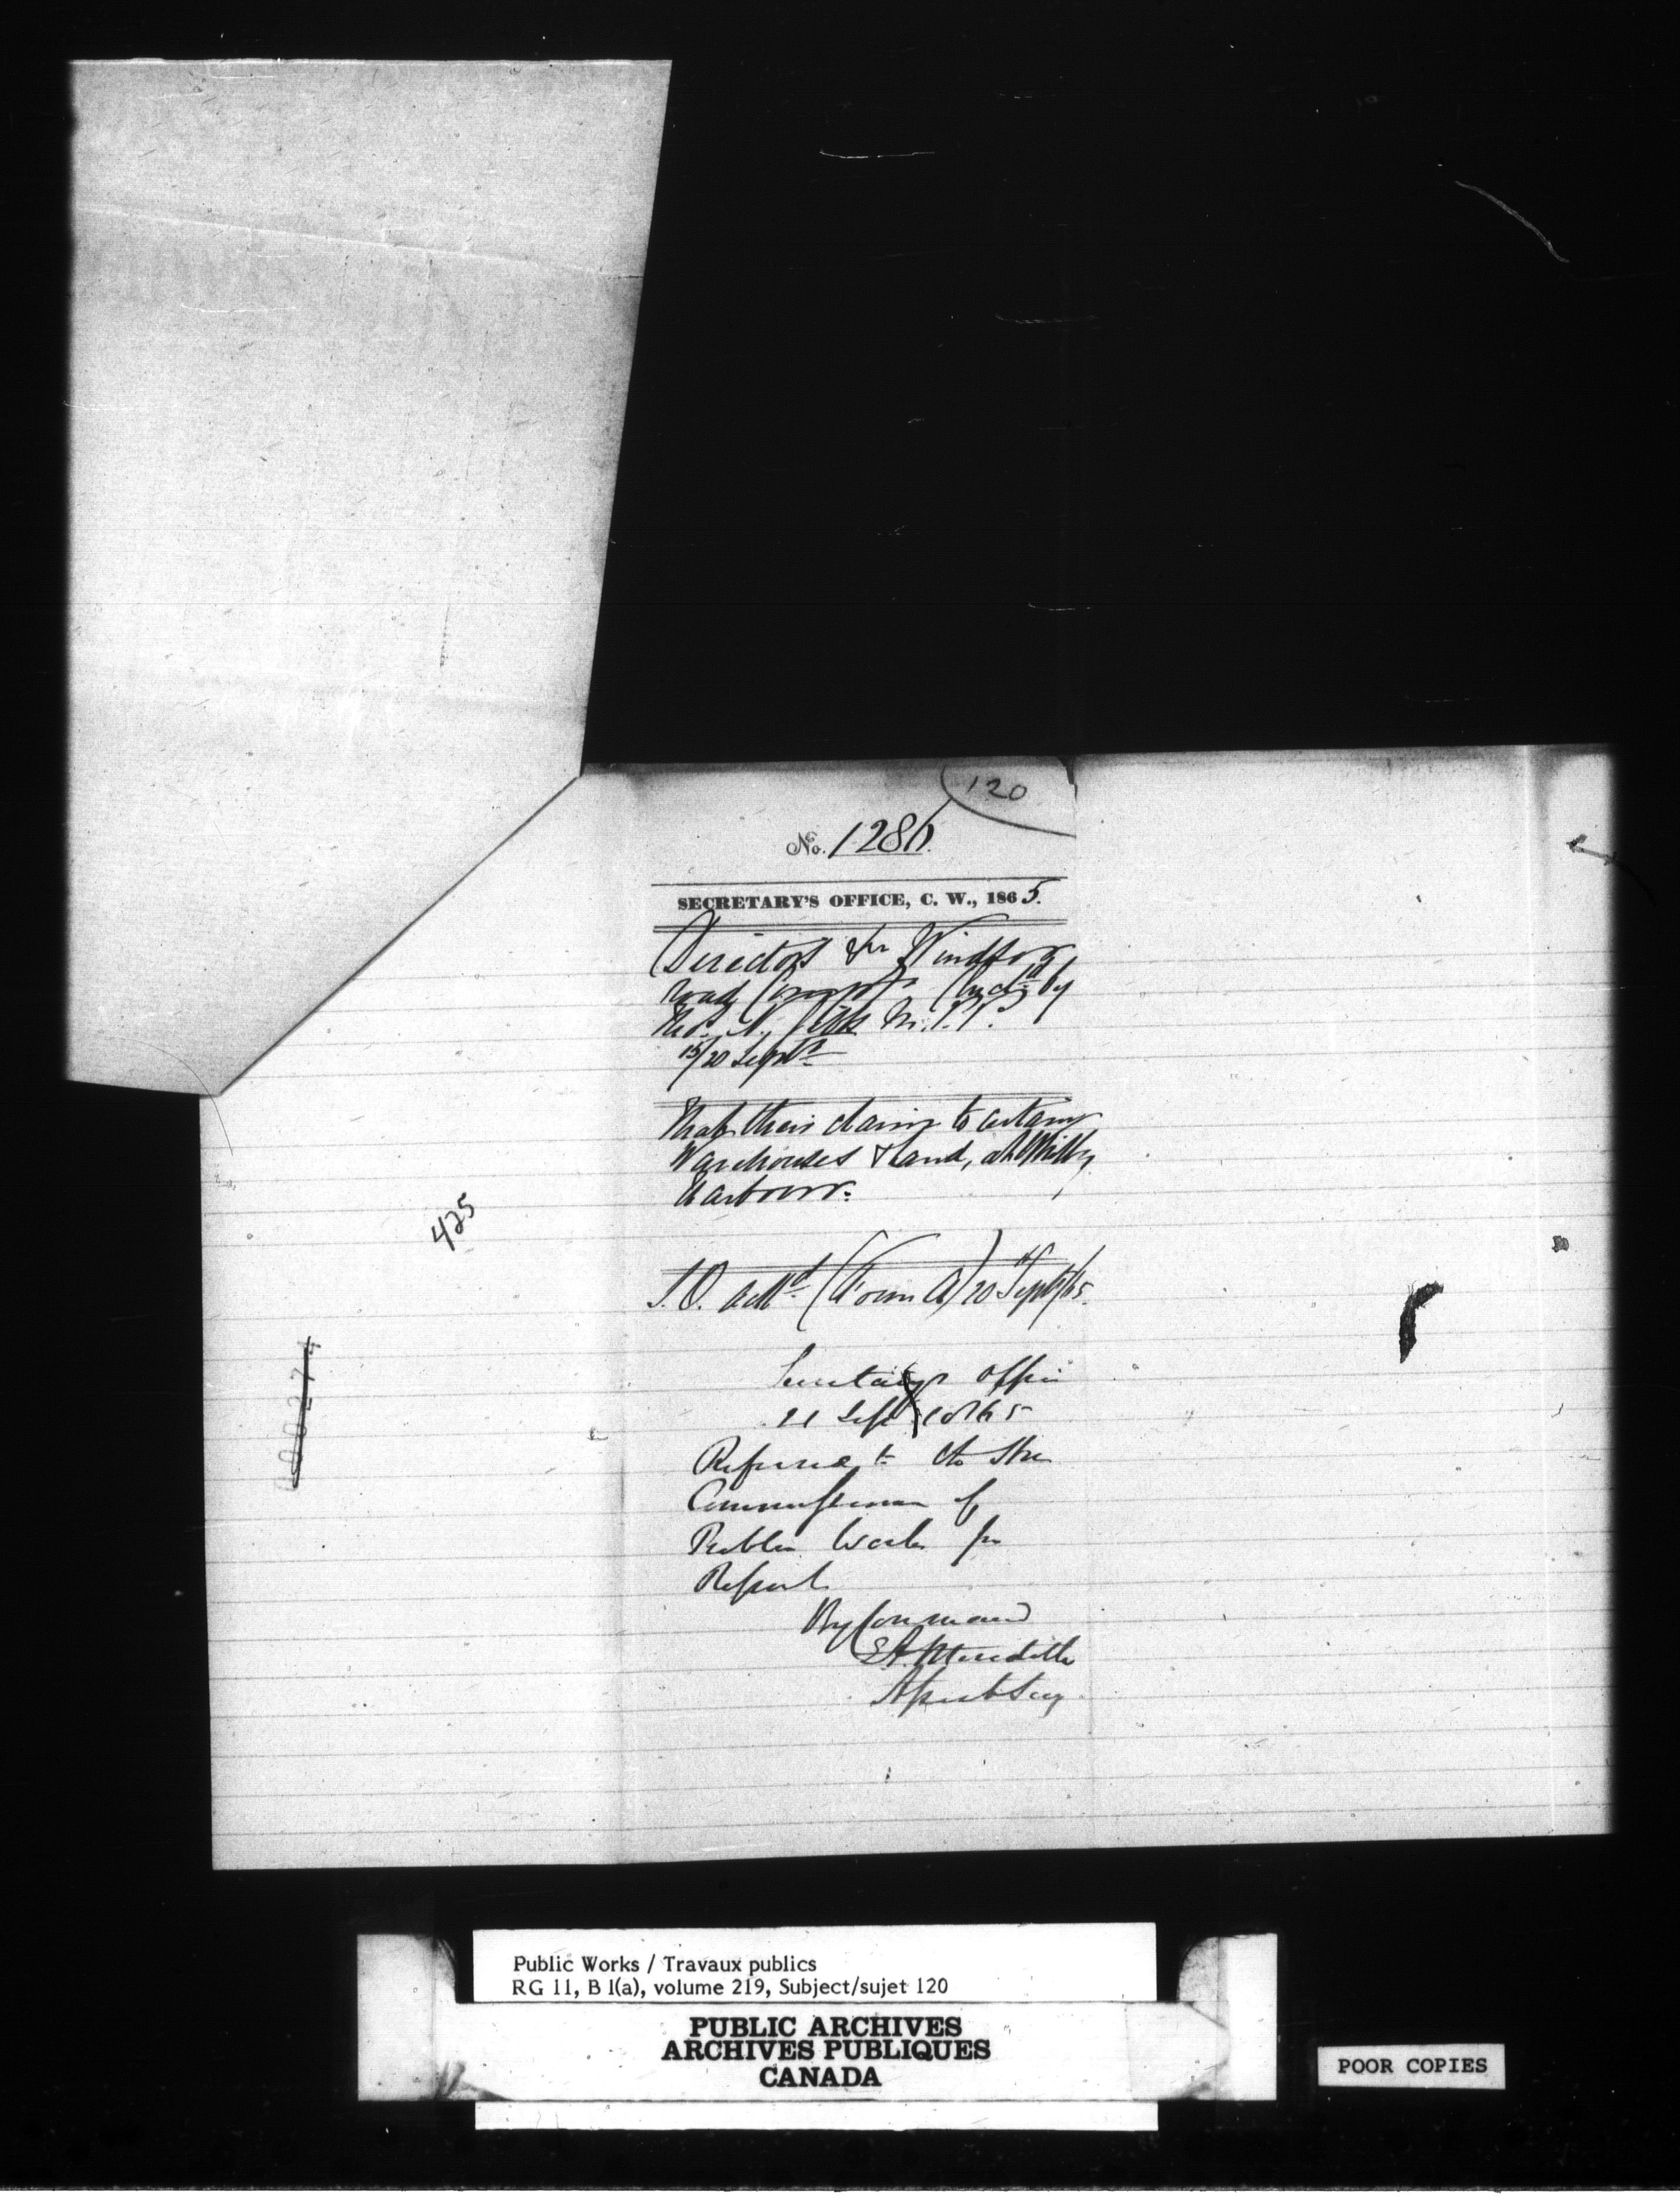 120
No. 1286.
SECRETARY'S OFFICE, C. W., 1865.
Directors Windsor
road by
Thos. N. Gibbs M.P.P.
15/20 Septr.
their claim to certain
Warehouses & Land, at Whitby
Harbour.
425
(Form A) 20 Sept/65.
Secretary's Office
21 Sept 1865
Referred to the Hon
Commissioner of
Public Works for
Report
By Command
E A. Meredith
Asst Secy
Public Works / Travaux publics
RG 11, B 1(a), volume 219, Subject/sujet 120
PUBLIC ARCHIVES
ARCHIVES PUBLIQUES
CANADA
POOR COPIES